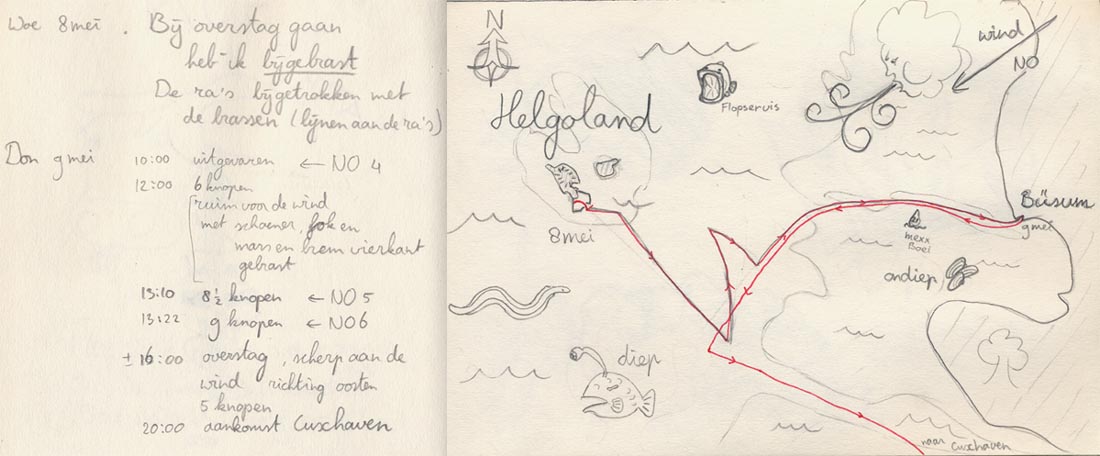 Woe 8 mei . Bij overstag gaan
heb ik bijgebrast
De ra's bijgetrokken met
de brassen (lijnen aan de ra's)
Don 9 mei 10:00 uitgevaren ← NO 4
12:00 6 knopen
ruim voor de wind
met schoener, fok en
mars en brem vierkant
gebrast
13:10 8 1/2 knopen ← NO 5
13:22 9 knopen ← NO 6
± 16:00 overstag, scherp aan de
wind richting oosten
5 knopen
20:00 aankomst Cuxhaven
N
Helgoland
8 mei
Flopservis
wind
NO
Büsum
9 mei
mexx
Boei
ondiep
diep
naar Cuxhaven